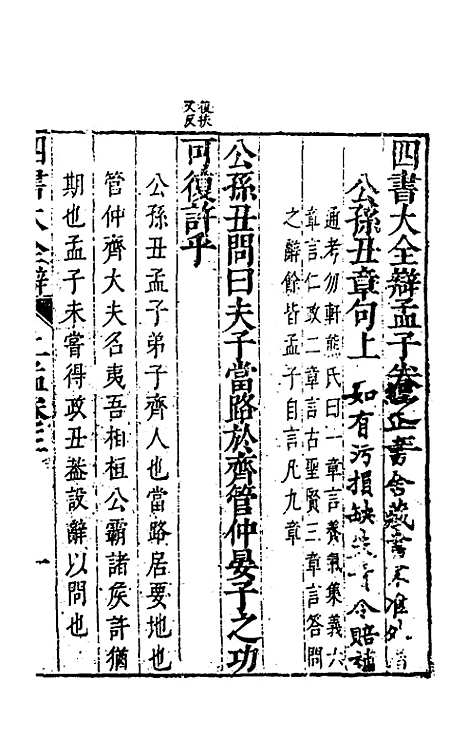 四書大全辯孟子卷之
正書舍藏書不准外借
公孫丑章句上
如有污損缺失責令賠補
通考勿軒熊氏曰一章言養氣集義六
章言仁政二章言古聖賢三章言答問
之辭餘皆孟子自言凡九章
公孫丑問曰夫子當路於齊管仲晏子之功
可復許乎
復扶
又反
公孫丑孟子弟子齊人也當路居要地也
管仲齊大夫名夷吾相桓公霸諸侯許猶
期也孟子未嘗得政丑蓋設辭以問也
四書大全辯
上孟卷三
一